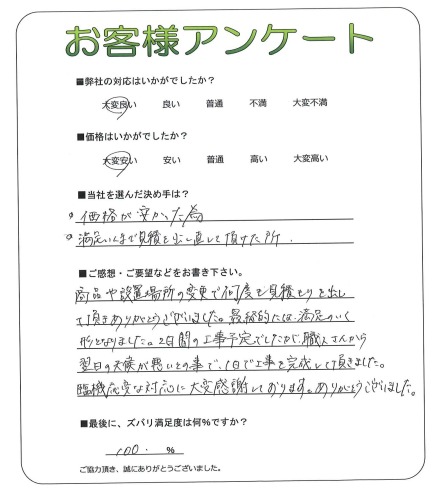 お客様アンケート
■弊社の対応はいかがでしたか？
大変良い 良い 普通 不満 大変不満
■価格はいかがでしたか？
大変安い 安い 普通 高い 大変高い
■当社を選んだ決め手は？
。価格が安かった為
。満足いくまで見積を出し直して頂けた所.
■ご感想・ご要望などをお書き下さい。
商品や設置場所の変更で何度も見積もりを出し
て頂きありがとうございました。最終的には満足のいく
形となりました。2日間の工事予定でしたが、職人さんから
翌日の天候が悪いとの事で、1日で工事を完成して頂きました。
臨機応変な対応に大変感謝しております。ありがとうございました。
■最後に、ズバリ満足度は何%ですか？
100. %
ご協力頂き、誠にありがとうございました。